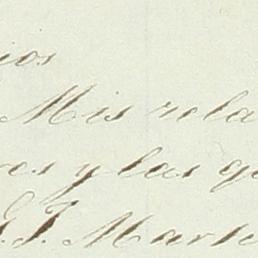 ios
Mis rela
res y las qu
S.S. Marte